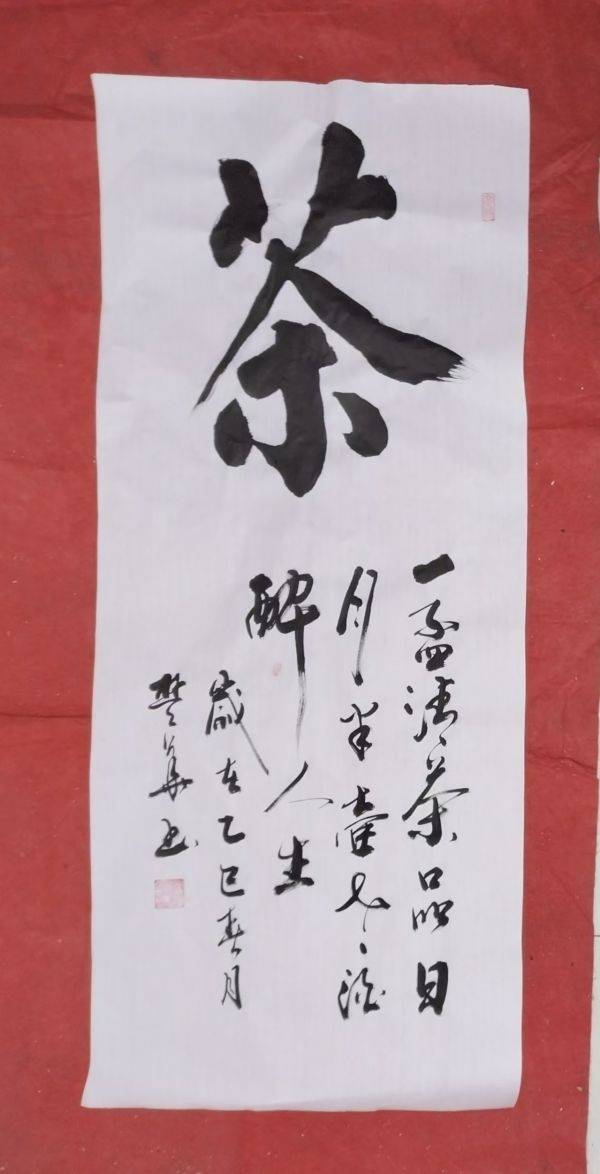 茶
一盏清茶品日
月半壶老酒
醉人生
歲在乙巳春月
樊華书